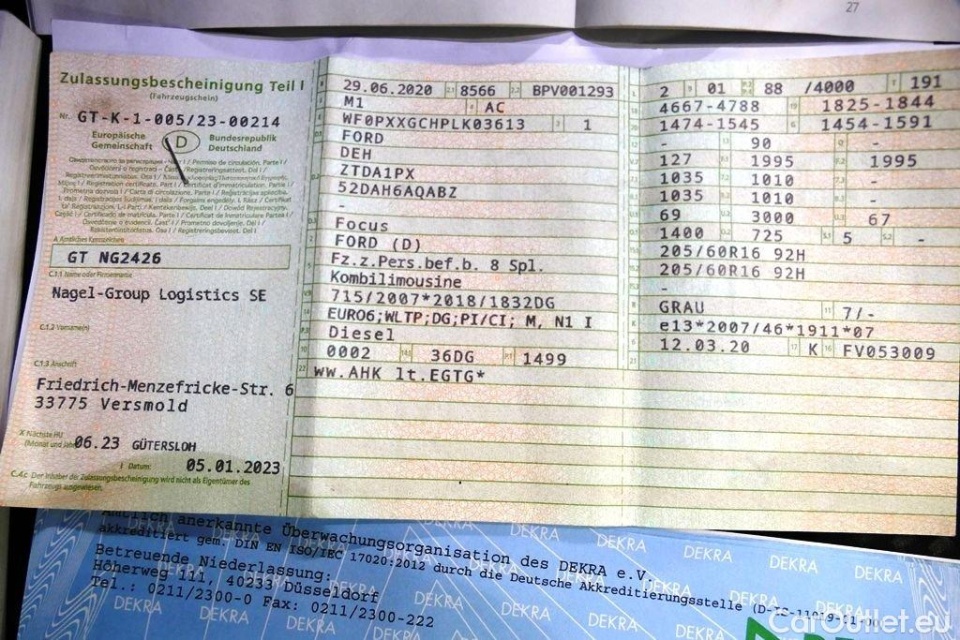 27
Zulassungsbescheinigung Teil I
(Fahrzeugschein)
Nr. GT-K-1-005/23-00214
Europäische Gemeinschaft
D
Bundesrepublik Deutschland
A Amtliches Kennzeichen
GT NG2426
C.1.1 Name oder Firmenname
Nagel-Group Logistics SE
C.1.2 Vorname(n)
C.1.3 Anschrift
Friedrich-Menzefricke-Str. 6
33775 Versmold
X Nächste HU
(Monat und Jahr) 06.23 GÜTERSLOH
I Datum: 05.01.2023
C.4c Der Inhaber der Zulassungsbescheinigung wird nicht als Eigentümer des
Fahrzeugs ausgewiesen.
29.06.2020 2.1 8566 2.2 BPV001293
M1 AC
WF0PXXGCHPLK03613 3 1
FORD
DEH
ZTDA1PX
52DAH6AQABZ
-
Focus
FORD (D)
Fz.z.Pers.bef.b. 8 Spl.
Kombilimousine
715/2007*2018/1832DG
EURO6;WLTP;DG;PI/CI; M, N1 I
Diesel
0002 36DG 1499
ww.AHK lt.EGTG*
2 01 88 /4000 191
4667-4788 1825-1844
1474-1545 1454-1591
- 90 -
127 1995 1995
1035 1010 -
1035 1010 -
69 3000 67
1400 725 5 -
205/60R16 92H
205/60R16 92H
-
GRAU 7/-
e13*2007/46*1911*07
12.03.20 K FV053009
Amtlich anerkannte Überwachungsorganisation des DEKRA e.V.
akkreditiert gem. DIN EN ISO/IEC 17020:2012 durch die Deutsche Akkreditierungsstelle
Betreuende Niederlassung:
Höherweg 111, 40233 Düsseldorf
Tel.: 0211/2300-0 Fax: 0211/2300-222
DEKRA
CarOutlet.eu